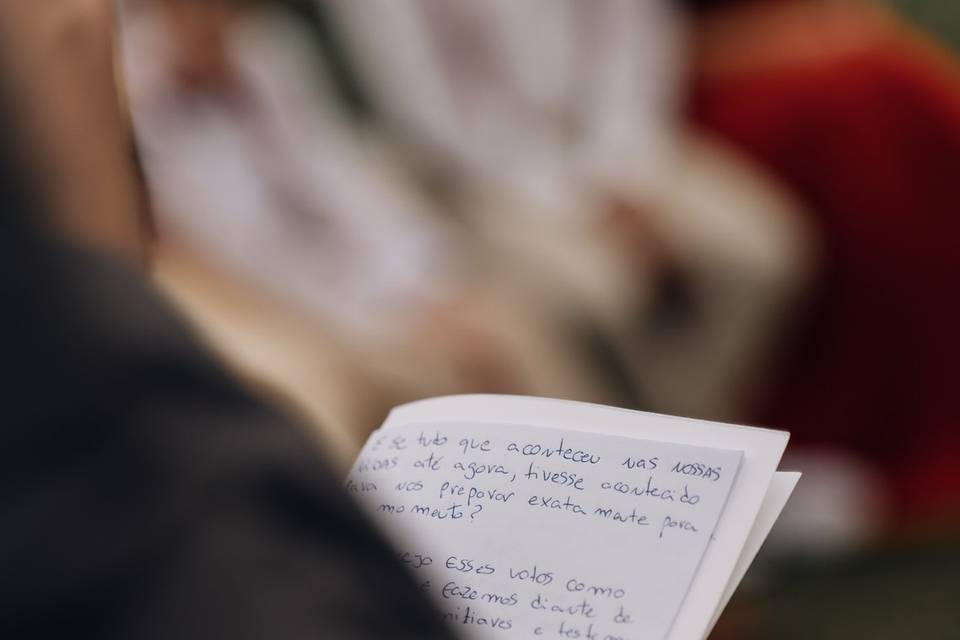 E se tudo que aconteceu nas nossas
vidas até agora, tivesse acontecido
para nos preparar exatamente para
momento?
Esses votos como
e fazemos diante de
e